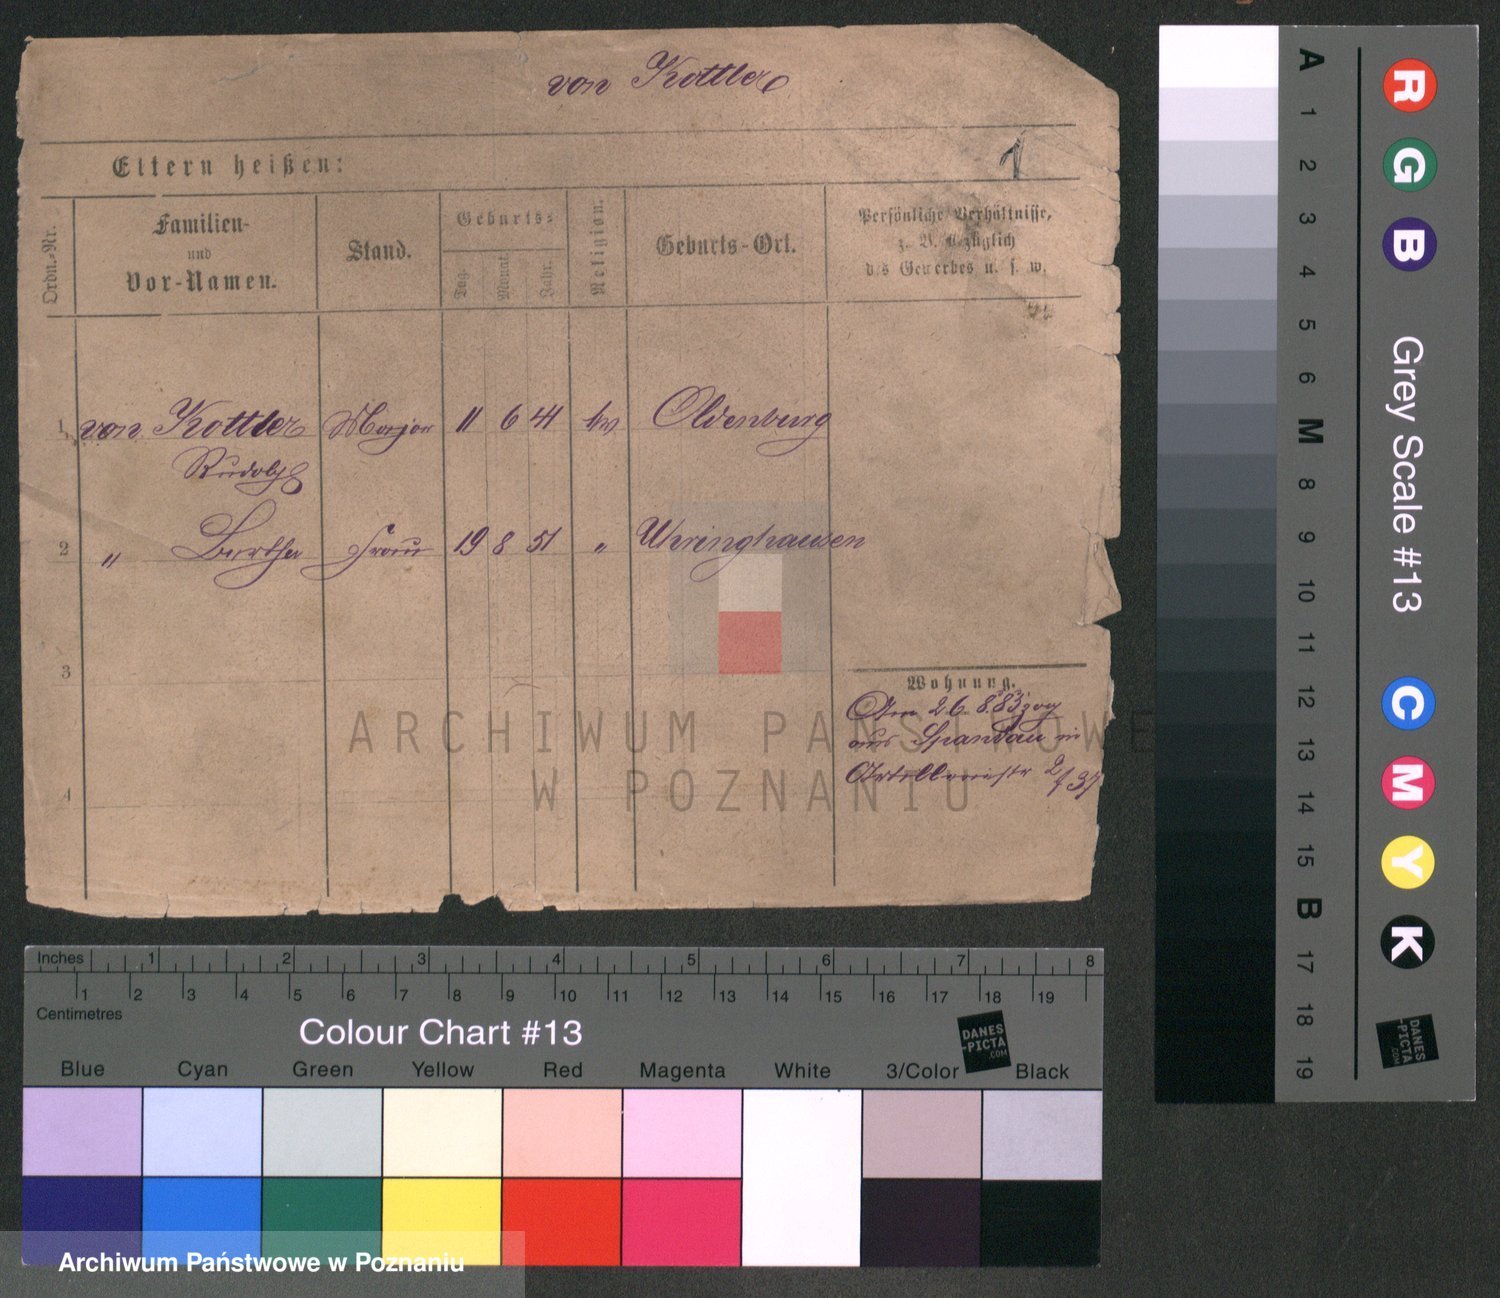 von Kottler
1
Eltern heißen:
Ordn.-Nr.
Familien-
und
Vor-Namen.
Stand.
Geburts-
Tag.
Monat
Jahr.
Religion.
Geburts-Ort.
Persönliche Verhältnisse,
z. B. bezüglich
des Gewerbes u. s. w.
1 von Kottler Major 11 6 41 Oldenburg
Rudolph
2 " Bertha Frau 19 8 51 " Weringhausen
3
4
Wohnung.
Am 26.8.83 zog
aus Spandau in
2/37
ARCHIWUM PAŃSTWOWE
W POZNANIU
Inches 1 2 3 4 5 6 7 8
1 2 3 4 5 6 7 8 9 10 11 12 13 14 15 16 17 18 19
Centimetres
Colour Chart #13
DANES
-PICTA
.COM
Blue Cyan Green Yellow Red Magenta White 3/Color Black
Archiwum Państwowe w Poznaniu
A 1 2 3 4 5 6 M 8 9 10 11 12 13 14 15 B 17 18 19
R G B Grey Scale #13 C M Y K
DANES
-PICTA
.COM